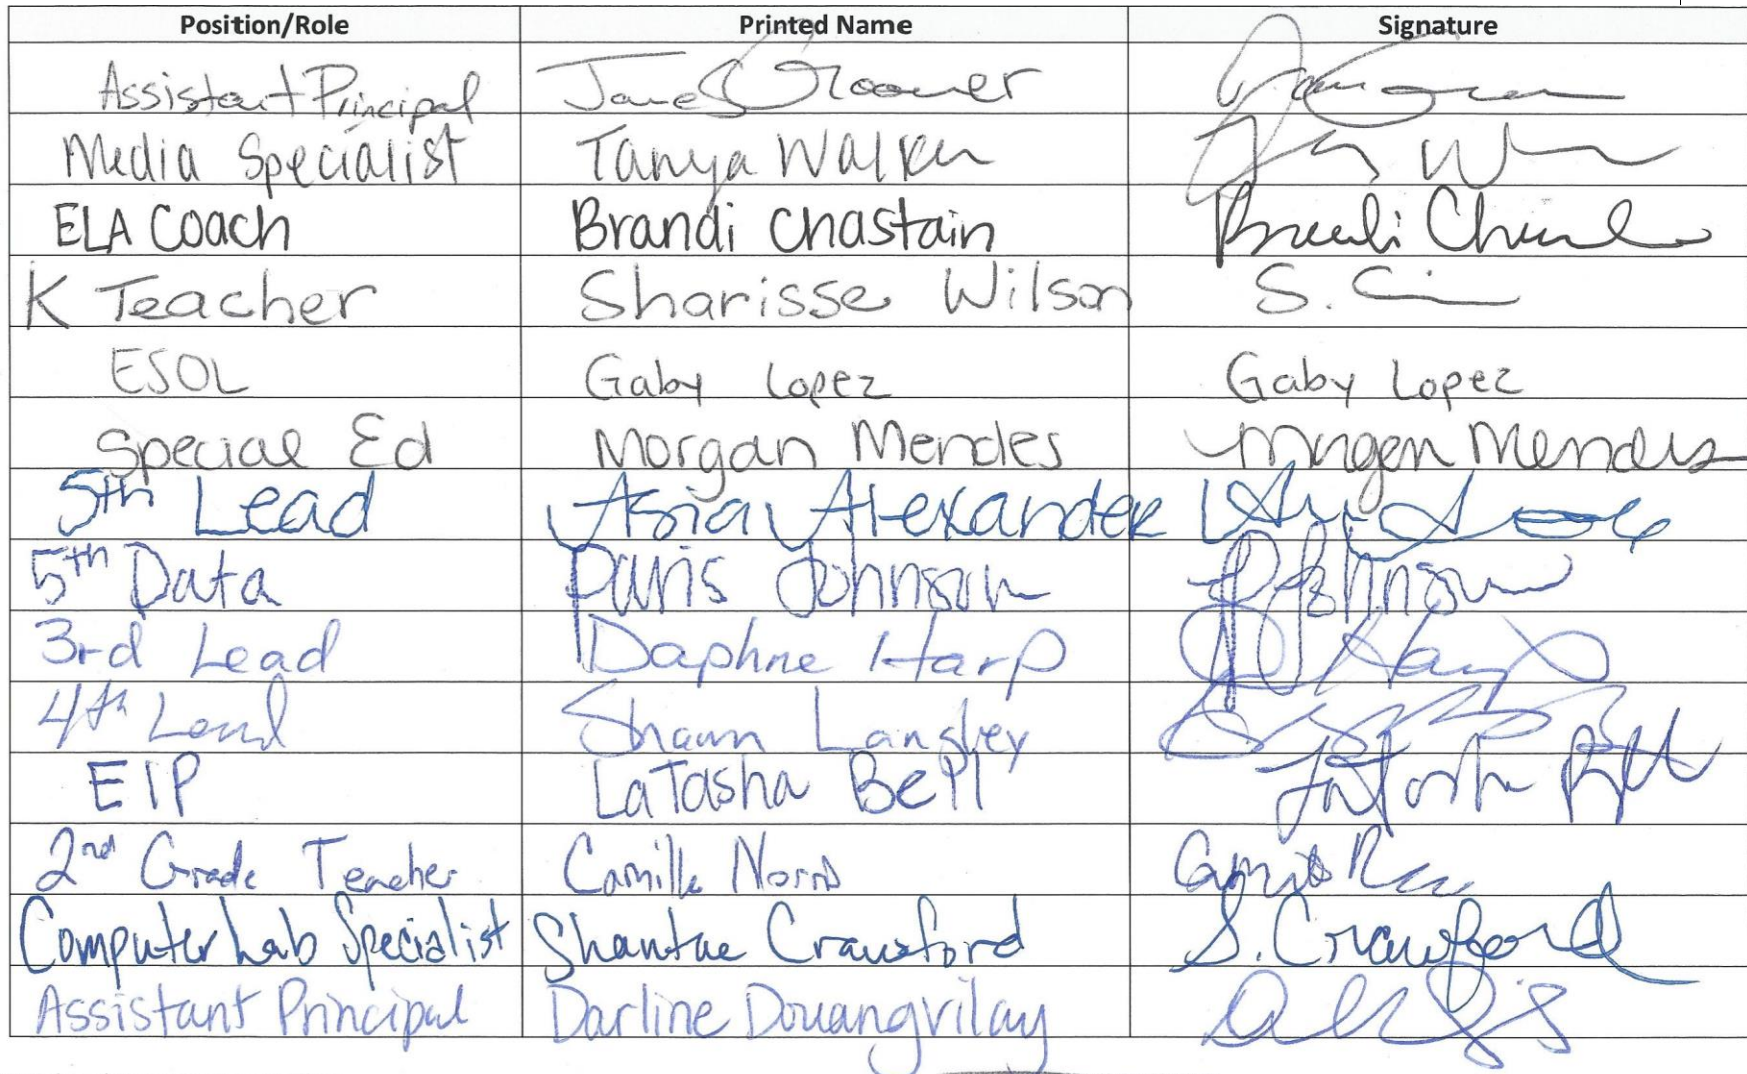 Position/Role Printed Name Signature
Assistant Principal Janet
Media Specialist Tanya Walker
ELA Coach Brandi Chastain Brandi
K Teacher Sharisse Wilson S.
ESOL Gaby Lopez Gaby Lopez
Special Ed Morgan Mendes Morgan Mendes
5th Lead Asia Alexander
5th Data Paris Johnson P Johnson
3rd Lead Daphne Harp D Harp
4th Lead Shawn Langley
EIP LaTasha Bell LaTosha Bell
2nd Grade Teacher Camille Norris
Computer Lab Specialist Shantae Crawford S. Crawford
Assistant Principal Darline Douangvilay